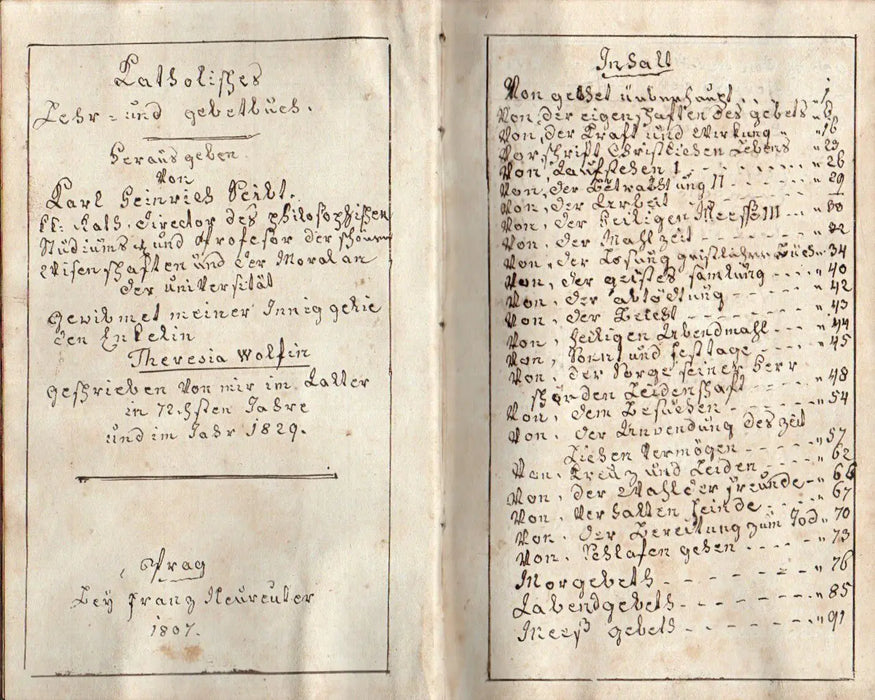 Katholisches
Lehr- und gebetbuch.
Heraus geben
Von
Karl Heinrich Seibt.
kk: Rath, Director des philosophischen
Studiums und Profesor der schönen
Wisenschaften und der Moral an
der universität
gewibmet meiner Innig gelie
den Enkelin
Theresia Wolfin
geschrieben von mir im Latter
in 72.hsten Jahre
und im Jahr 1829.
Prag
Bey franz Neureuter
1807.
Inhalt
Von gebet überhaupt . . 1
Von der eigenschaften des gebets " 6
Von, der Kraft und Wirkung " 16
Vorschrift Christlichen Lebens " 23
Von, Laufstehen I. - - - " 26
Von, der Betrachtung II - - - " 29
Von, der Arbeit
Von, der Heiligen Meesse III - - - " 30
Von, der Mahlzeit - - - - " 32
Von, der Lesung geistlicher Büch " 34
Von, der geistes samlung - - - " 40
Von, der abtödtung - - - - " 42
Von, der Beicht - - - - " 43
Von, heiligen Abendmahl - - - " 44
Von, Sonn, und festage - - - " 45
Von, der Sorge seiner Herr
schenden Leidenschaft - - - " 48
Von, dem Besuchen - - - - " 54
Von, der Anvendung des zeit
Lichen Vermögen - - - " 57
Von, Kreuz und Leiden, - - - " 62
Von, der Wahl der freunde - - " 66
Von, Verhalten feinde - - - " 67
Von, der Bereitung zum Tod " 70
Von, Schlafen gehen - - - - " 73
Morgebeth - - - - - - " 76
Labendgebeth - - - - - " 85
Meeß gebeth - - - - - " 91